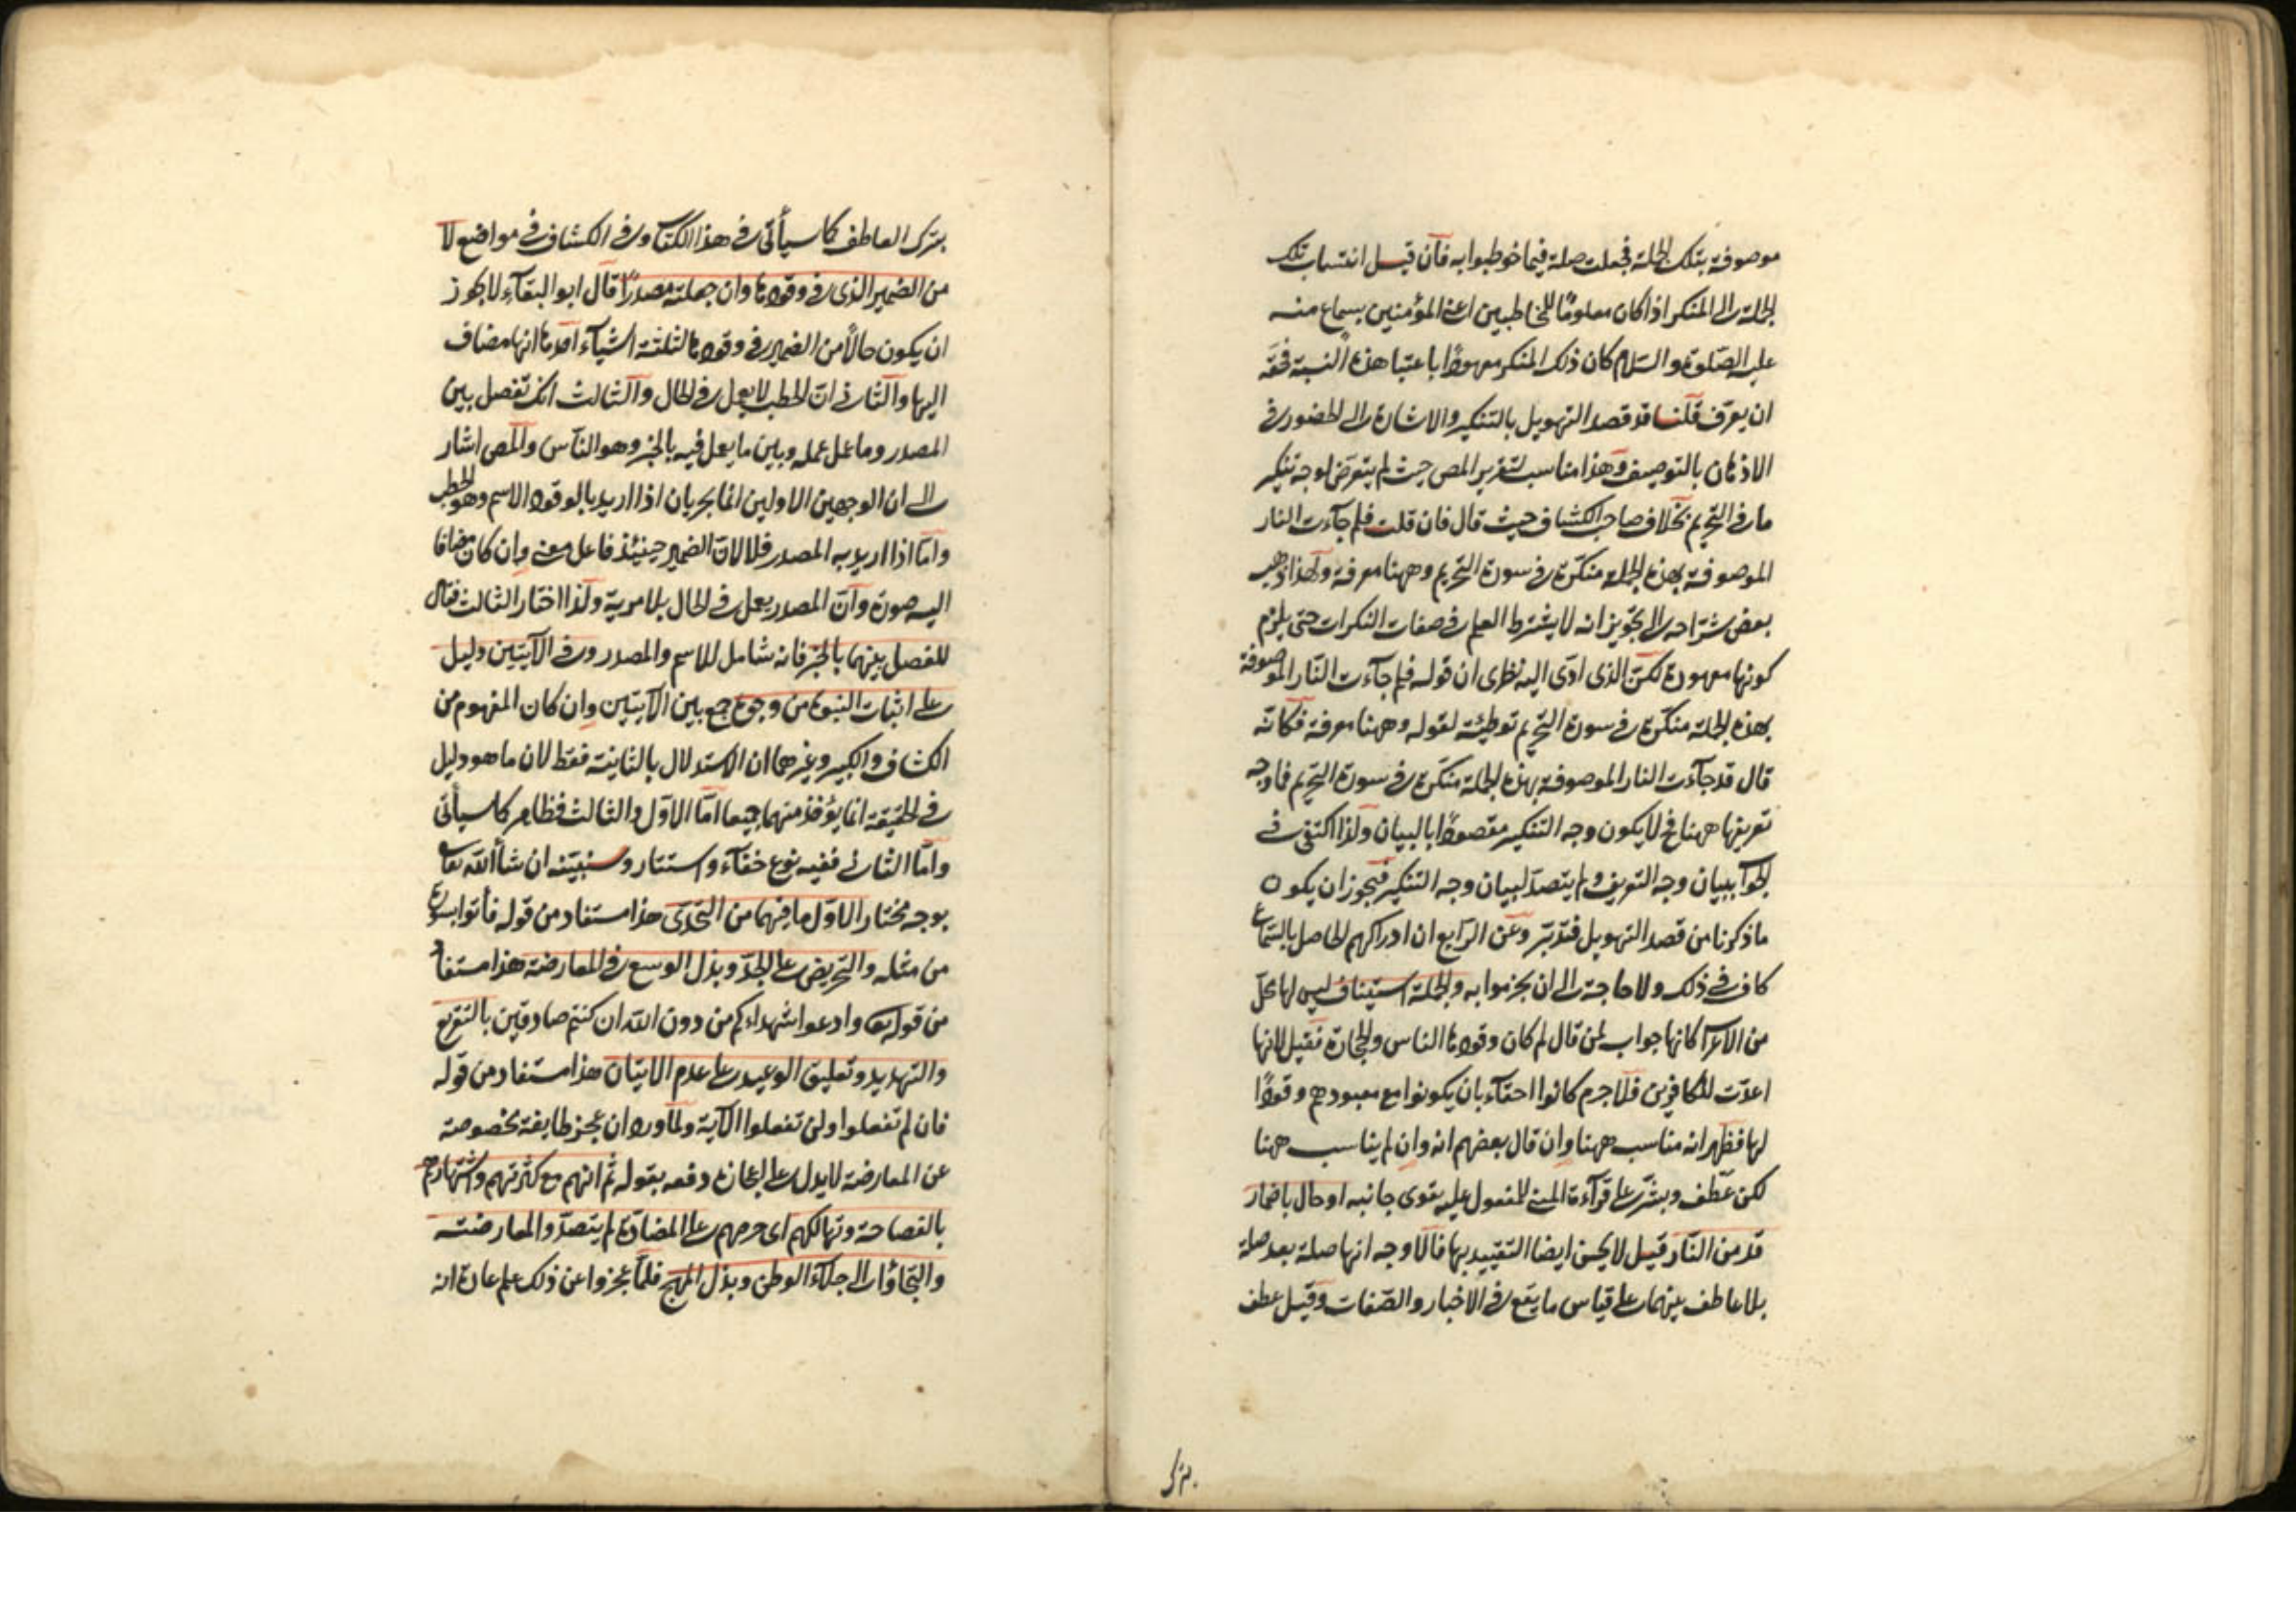 موصوفة بتلك الجملة فجعلت صلة فيما خوطبوا به فان قيل انتساب تلك
الجملة الى المنكر اذا كان معلوما للمخاطبين اعنى المؤمنين بسماع منه
عليه الصلوة والسلام كان ذلك المنكر معهودا باعتبار هذه النسبة فحقه
ان يعرف قلنا قد قصد التهويل بالتنكير والاشارة الى الحضور فى
الاذهان بالتوصيف وهذا مناسب لتقرير المص حيث لم يتعرض لوجه تنكير
ما فى التحريم بخلاف صاحب الكشاف حيث قال فان قلت فلم جآءت النار
الموصوفة بهذه الجملة منكرة فى سورة التحريم وههنا معرفة ولهذا ذهب
بعض شراحه الى تجويز انه لا يشترط العلم فى صفات النكرات حتى يلزم
كونها معهودة لكن الذى ادى اليه نظرى ان قوله فلم جآءت النار الموصوفة
بهذه الجملة منكرة فى سورة التحريم توطئة لقوله وههنا معرفة فكانه
قال قد جآءت النار الموصوفة بهذه الجملة منكرة فى سورة التحريم فما وجه
تعريفها ههنا فح لا يكون وجه التنكير مقصودا بالبيان ولذا اكتفى فى
الجواب ببيان وجه التعريف ولم يتصد لبيان وجه التنكير فيجوز ان يكون
ما ذكرنا من قصد التهويل فتدبر وعن الرابع ان ادراكهم الحاصل بالسماع
كاف فى ذلك ولا حاجة الى ان يجزموا به والجملة استيناف ليس لها محل
من الاعراب كانها جواب لمن قال لم كان وقودها الناس والحجارة فقيل لانها
اعدت للكافرين فلا جرم كانوا احقآء بان يكونوا مع معبودهم وقودا
لها فظهر انه مناسب ههنا وان قال بعضهم انه وان لم يناسب ههنا
لكن عطف وبشر على قرآءة المبنى للمفعول عليه يقوى جانبه او حال باضمار
قد من النار قيل لا يحسن ايضا التقييد بها فالاوجه انها صلة بعد صلة
بلا عاطف بينهما على قياس ما يقع فى الاخبار والصفات وقيل عطف
بترك
بترك العاطف كما سيأتى فى هذا الكتاب وفى الكشاف فى مواضع لا
من الضمير الذى فى وقودها وان جعلته مصدرا قال ابو البقآء لا يجوز
ان يكون حالا من الضمير فى وقودها لثلثة اشيآء احدها انها مضاف
اليها والثانى ان الحطب لا يعمل فى الحال والثالث انك تفصل بين
المصدر وما عمل عمله وبين ما يعمل فيه بالخبر وهو الناس والمص اشار
الى ان الوجهين الاولين انما يجريان اذا اريد بالوقود الاسم وهو الحطب
واما اذا اريد به المصدر فلا لان الضمير حينئذ فاعل معنى وان كان مضافا
اليه صورة وان المصدر يعمل فى الحال بلا مرية ولذا اختار الثالث فقال
للفصل بينهما بالخبر فانه شامل للاسم والمصدر وفى الآيتين دليل
على اثبات النبوة من وجوه جمع بين الآيتين وان كان المفهوم من
الكشاف والكبير وغيرهما ان الاستدلال بالثانية فقط لان ما هو دليل
فى الحقيقة انما يؤخذ منهما جميعا اما الاول والثالث فظاهر كما سيأتى
واما الثانى ففيه نوع خفآء واستتار وسنبينه ان شآء الله تعالى
بوجه مختار الاول ما فيهما من التحدى هذا مستفاد من قوله فأتوا بسورة
من مثله والتحريض على الجد وبذل الوسع فى المعارضة هذا مستفاد
من قوله تعالى وادعوا شهداءكم من دون الله ان كنتم صادقين بالتقريع
والتهديد وتعليق الوعيد على عدم الاتيان هذا مستفاد من قوله
فان لم تفعلوا ولن تفعلوا الآية ولما ورد ان عجز طايفة مخصوصة
عن المعارضة لا يدل على الاعجاز دفعه بقوله ثم انهم مع كثرتهم واشتهارهم
بالفصاحة وتهالكهم اى حرصهم على المضادة لم يتصدوا لمعارضته
والتجاؤا الى جلاء الوطن وبذل المهج فلما عجزوا عن ذلك علم عادة انه